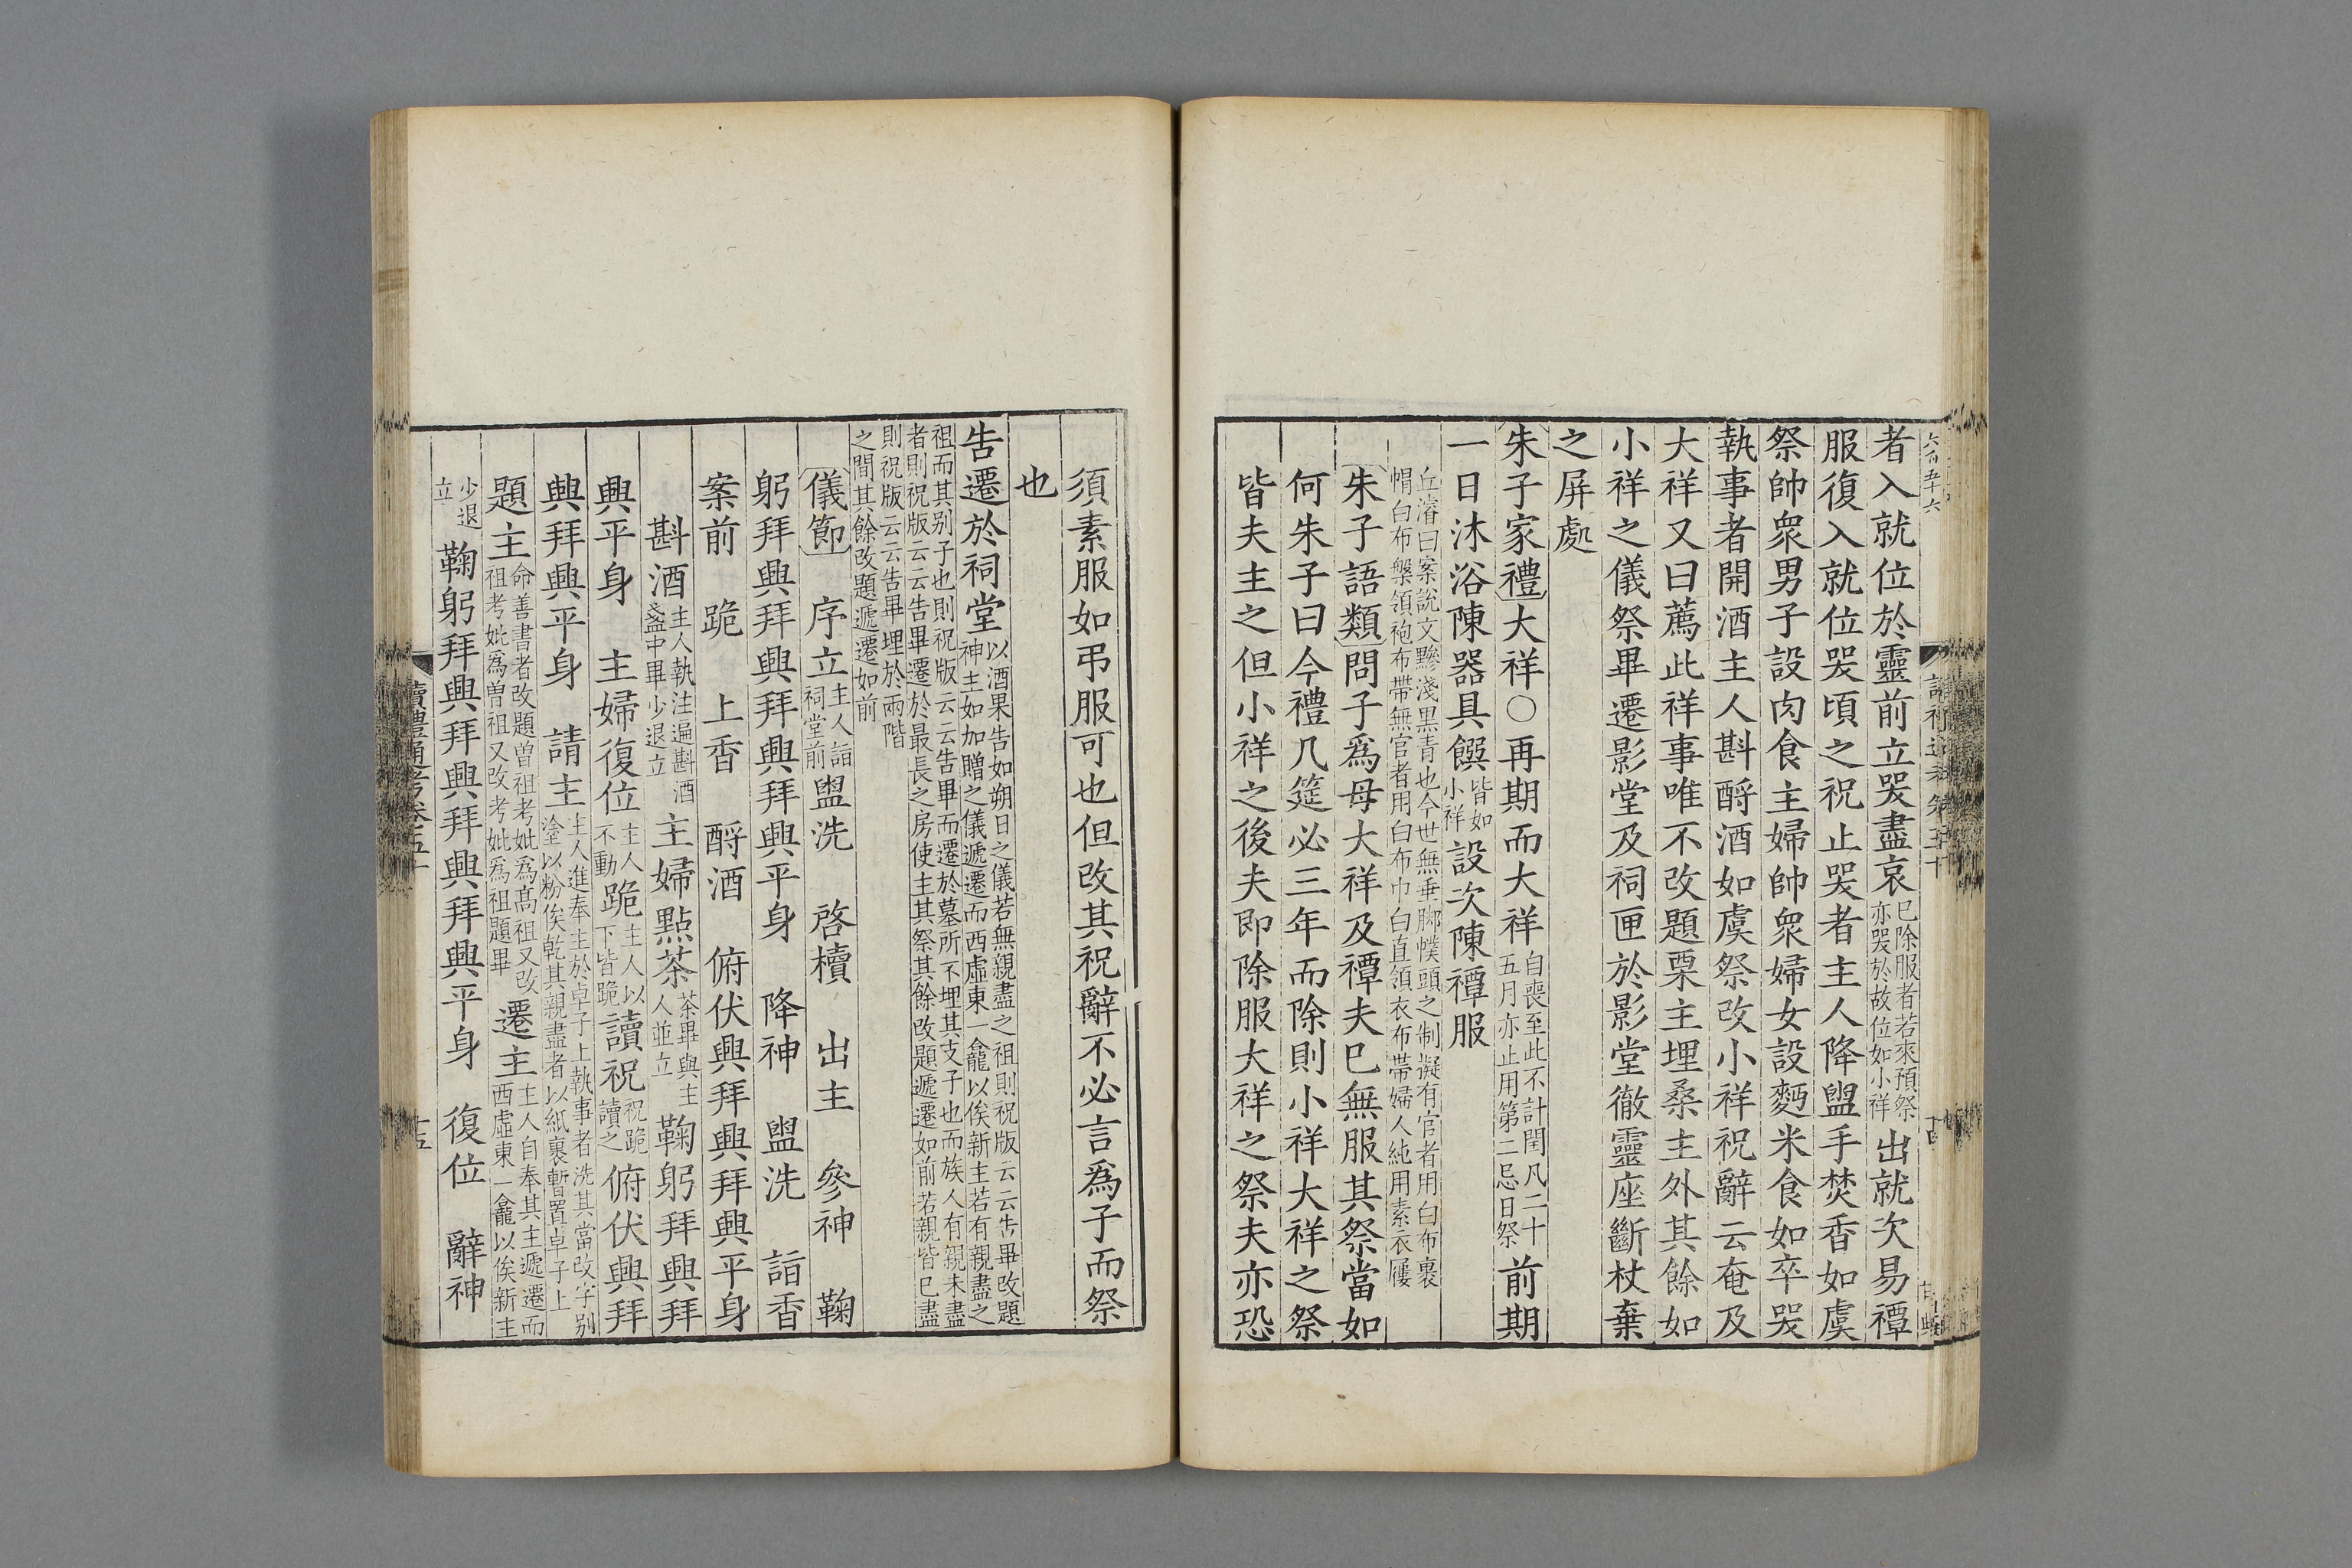 者入就位於靈前立哭盡哀已除服者若來預祭亦哭於故位如小祥出就次易禫
服復入就位哭頃之祝止哭者主人降盥手焚香如虞
祭帥衆男子設肉食主婦帥衆婦女設麪米食如卒哭
執事者開酒主人斟酹酒如虞祭改小祥祝辭云奄及
大祥又曰薦此祥事唯不改題栗主埋桑主外其餘如
小祥之儀祭畢遷影堂及祠匣於影堂徹靈座斷杖棄
之屏處
朱子家禮大祥〇再期而大祥自喪至此不計閏凡二十五月亦止用第二忌日祭前期
一日沐浴陳器具饌皆如小祥設次陳禫服
丘濬曰案說文黲淺黑青也今世無垂脚幞頭之制擬有官者用白布裹
帽白布槃領袍布帶無官者用白布巾白直領衣布帶婦人純用素衣屨
朱子語類問子爲母大祥及禫夫已無服其祭當如
何朱子曰今禮几筵必三年而除則小祥大祥之祭
皆夫主之但小祥之後夫即除服大祥之祭夫亦恐
須素服如弔服可也但改其祝辭不必言爲子而祭
也
告遷於祠堂以酒果告如朔日之儀若無親盡之祖則祝版云云告畢改題
神主如加贈之儀遞遷而西虛東一龕以俟新主若有親盡之
祖而其别子也則祝版云云告畢而遷於墓所不埋其支子也而族人有親未盡
者則祝版云云告畢遷於最長之房使主其祭其餘改題遞遷如前若親皆已盡
則祝版云云告畢埋於兩階
之間其餘改題遞遷如前
儀節 序立主人詣祠堂前盥洗 啓櫝 出主 參神 鞠
躬拜興拜興拜興拜興平身 降神 盥洗 詣香
案前 跪 上香 酹酒 俯伏興拜興拜興平身
斟酒主人執注遍斟酒盞中畢少退立主婦點茶茶畢與主人並立鞠躬拜興拜
興平身 主婦復位主人不動跪主人以下皆跪讀祝祝跪讀之俯伏興拜
興拜興平身 請主主人進奉主於卓子上執事者洗其當改字别塗以粉俟乾其親盡者以紙裹暫置卓子上
題主命善書者改題曽祖考妣爲髙祖又改祖考妣爲曽祖又改考妣爲祖題畢遷主主人自奉其主遞遷而西虛東一龕以俟新主
少退立鞠躬拜興拜興拜興拜興平身 復位 辭神
讀禮通考卷五十
十五